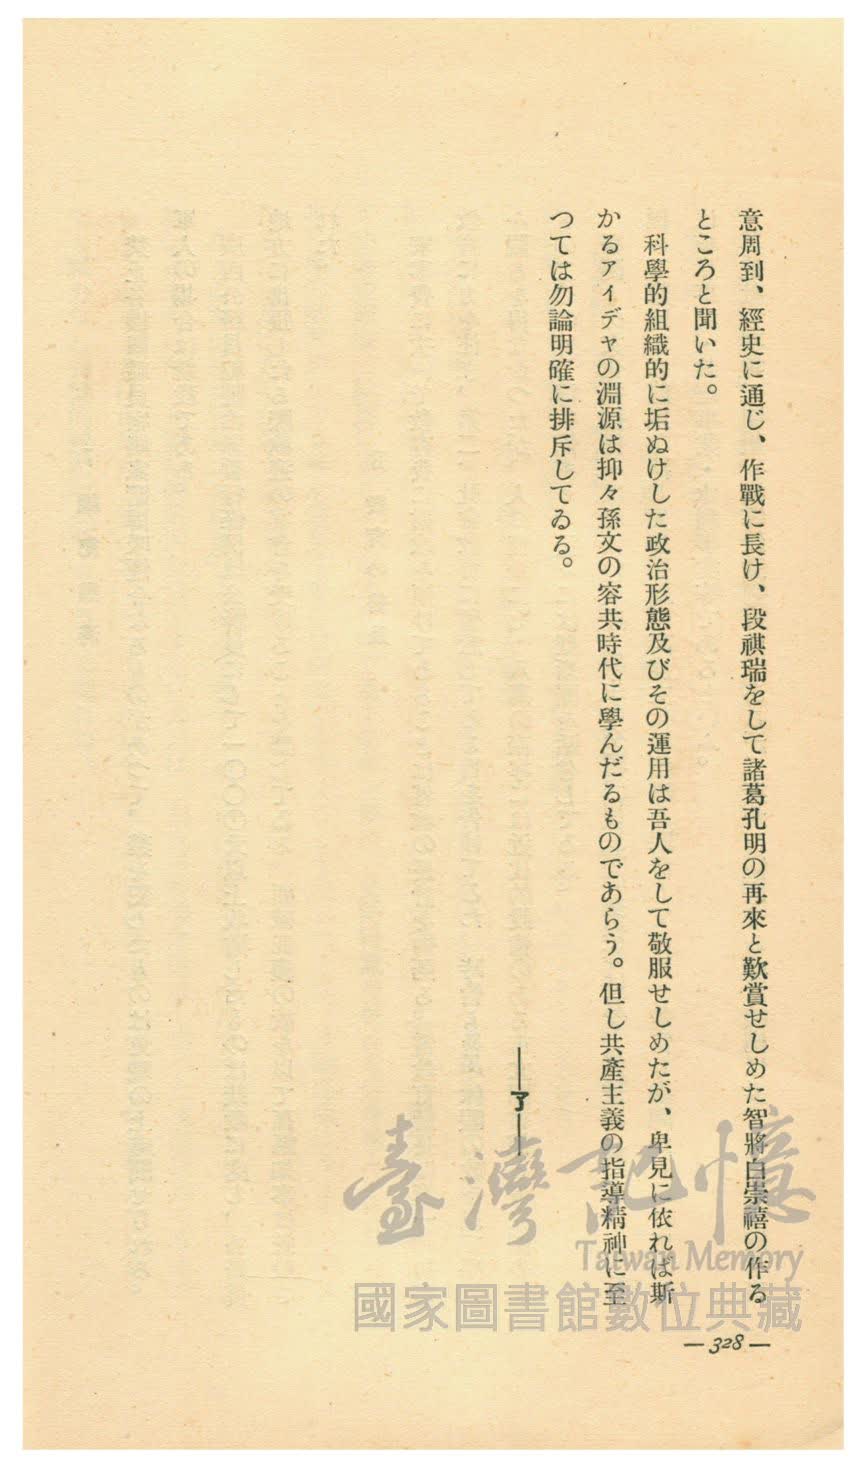 意周到、經史に通じ、作戰に長け、段祺瑞をして諸葛孔明の再來と歎賞せしめた智將白崇禧の作る
ところと聞いた。
科學的組織的に垢ぬけした政治形態及びその運用は吾人をして敬服せしめたが、卑見に依れば斯
かるアイデヤの淵源は抑々孫文の容共時代に學んだるものであらう。但し共產主義の指導精神に至
つては勿論明確に排斥してゐる。
——了——
臺灣記憶
Taiwan Memory
國家圖書館數位典藏
— 328 —